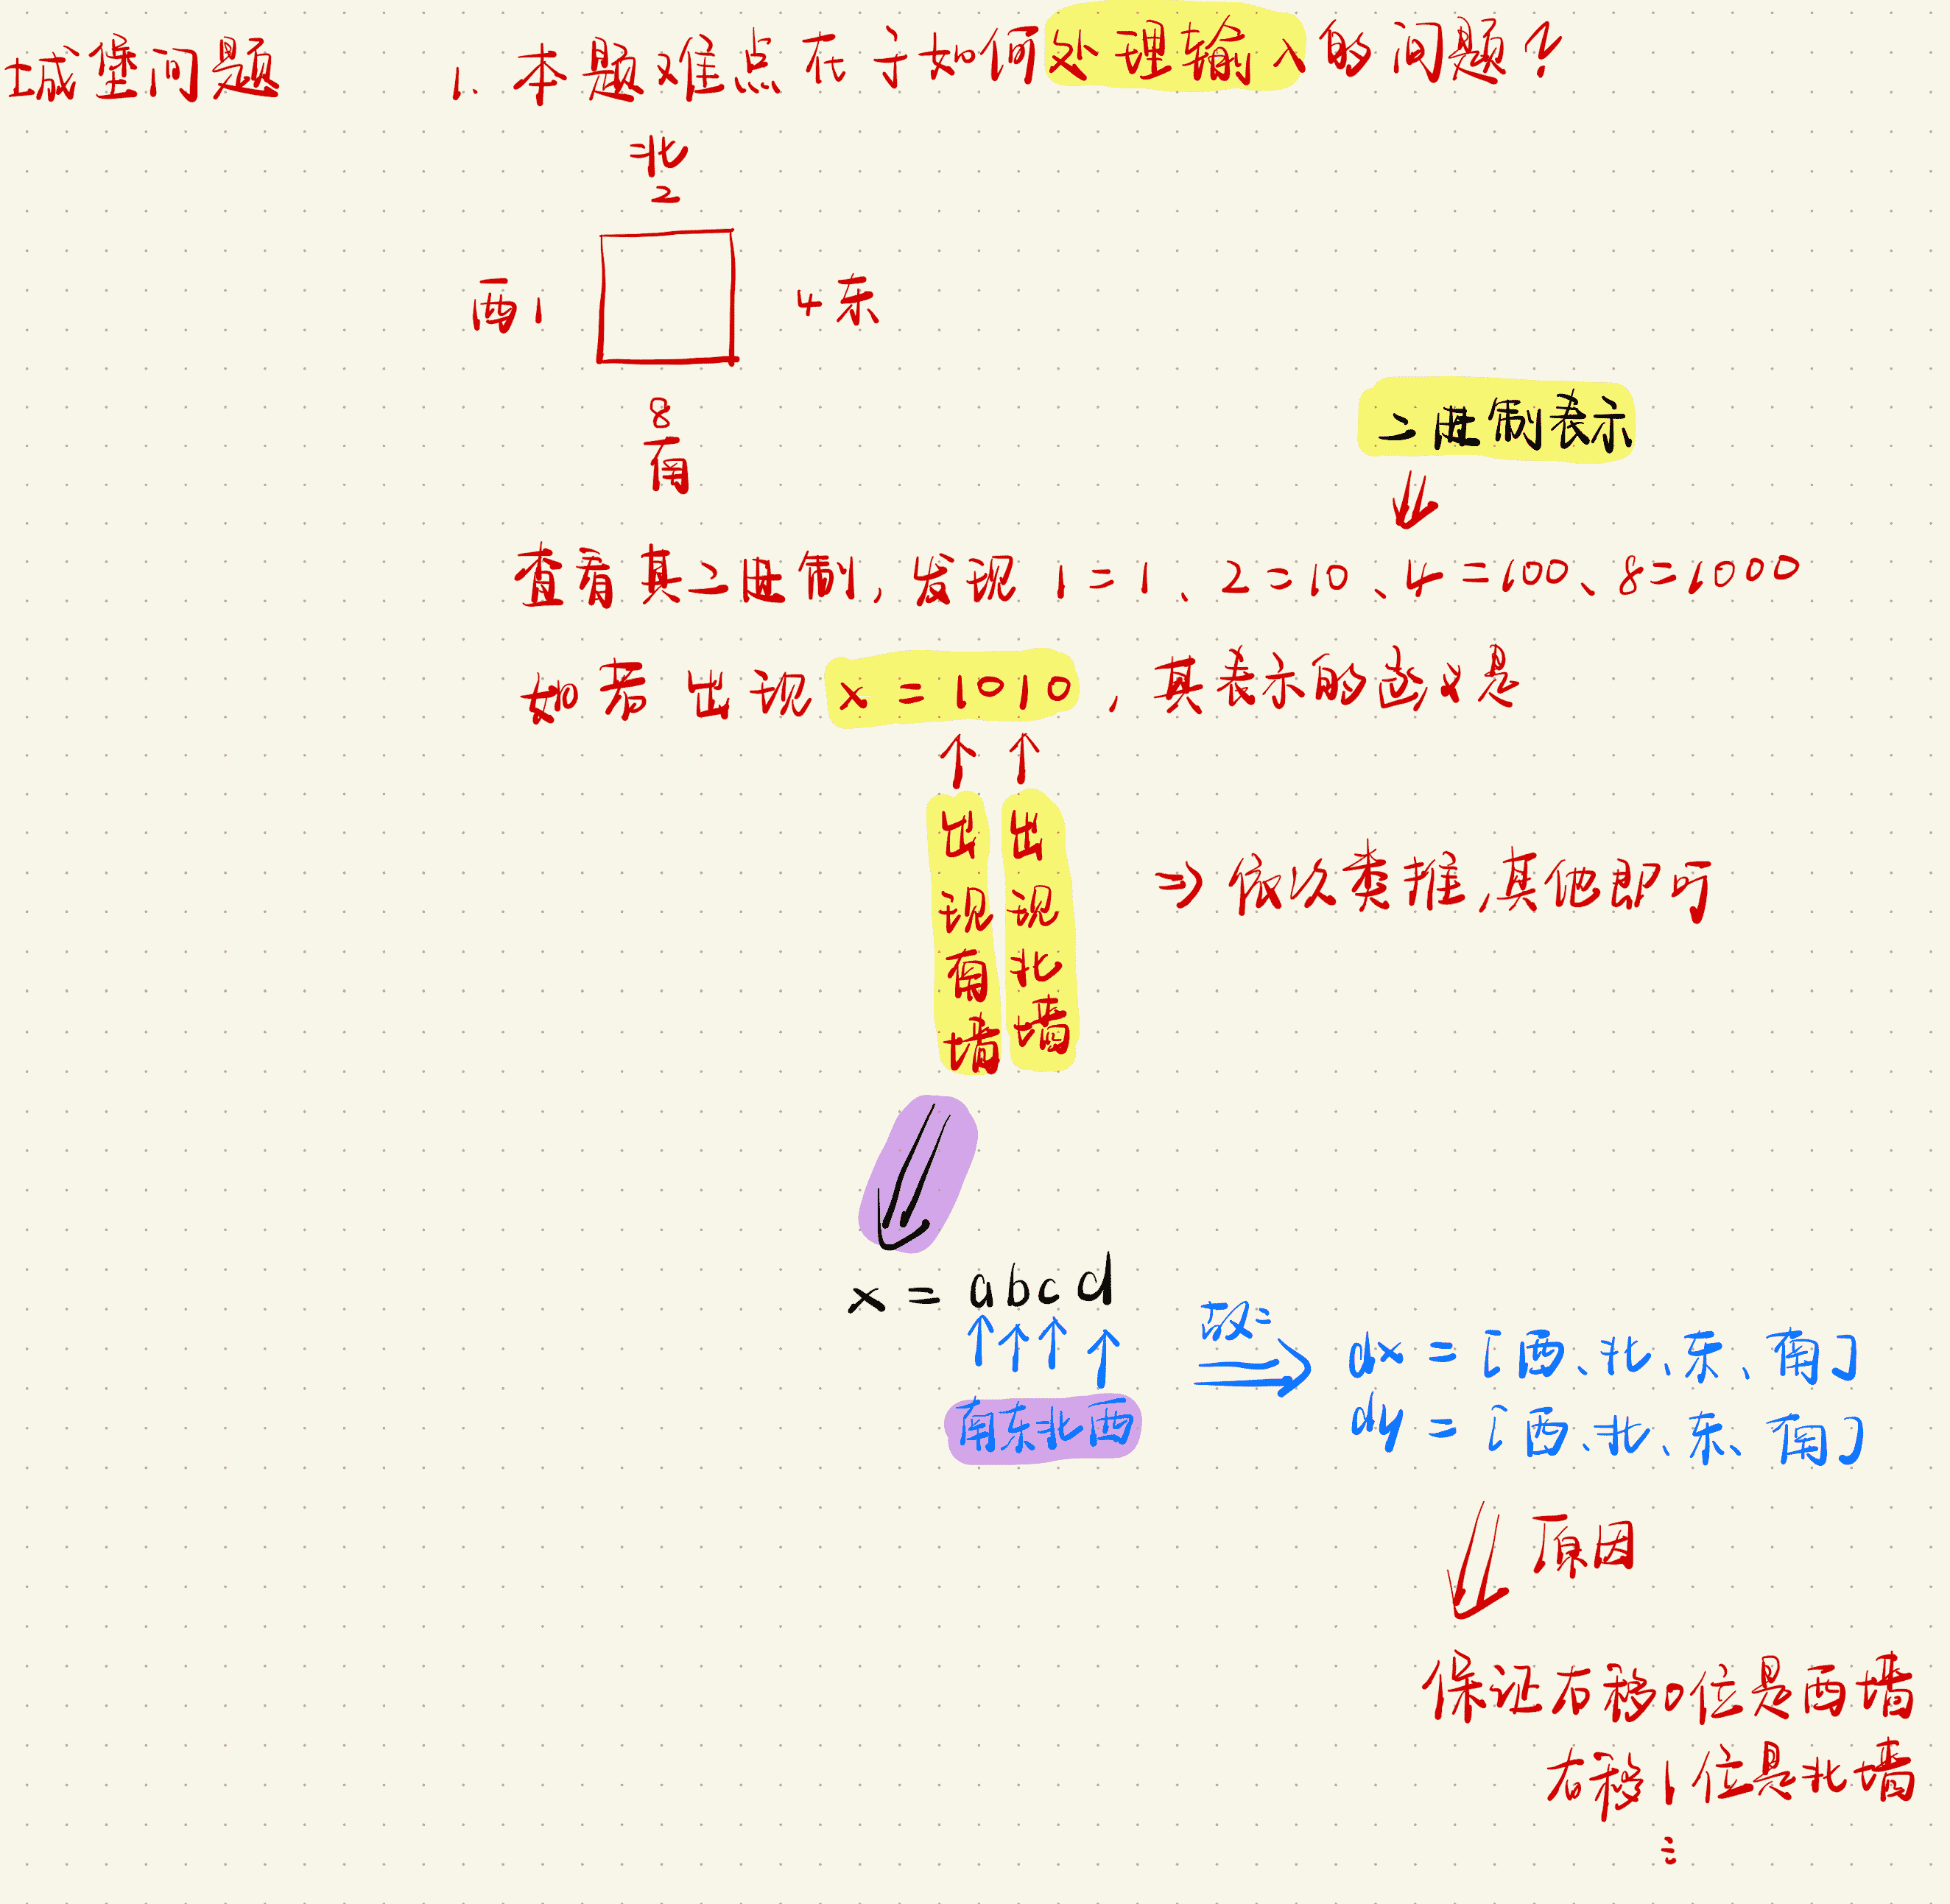 城堡问题
1. 本题难点在于如何处理输入的问题?
北
2
西1
4东
8
南
二进制表示
查看其二进制,发现 1=1、2=10、4=100、8=1000
如若出现 x=1010,其表示的含义是
出现南墙
出现北墙
=> 依次类推,其他即可
x = abcd
南东北西
故:
dx = [西、北、东、南]
dy = [西、北、东、南]
原因
保证右移0位是西墙
右移1位是北墙